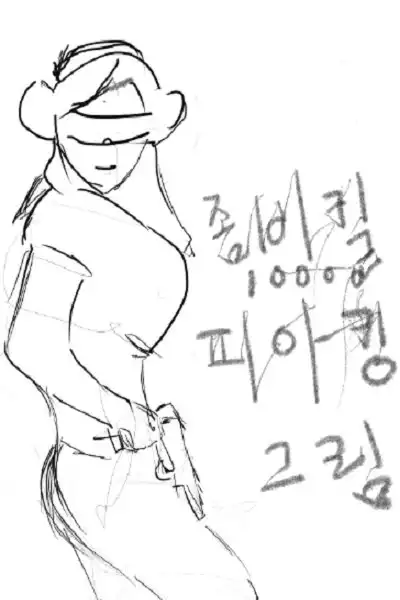 좀비킬
10000킬
피아킹
그림